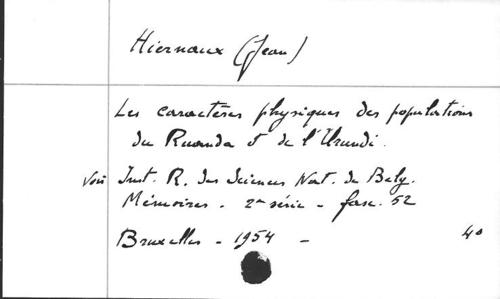 Hiernaux (Jean)
Les caractères physiques des populations
du Ruanda & de l'Urundi.
Voir Inst. R. des Sciences Nat. de Belg.
Mémoires - 2e série - fasc. 52
Bruxelles - 1954 - 4o